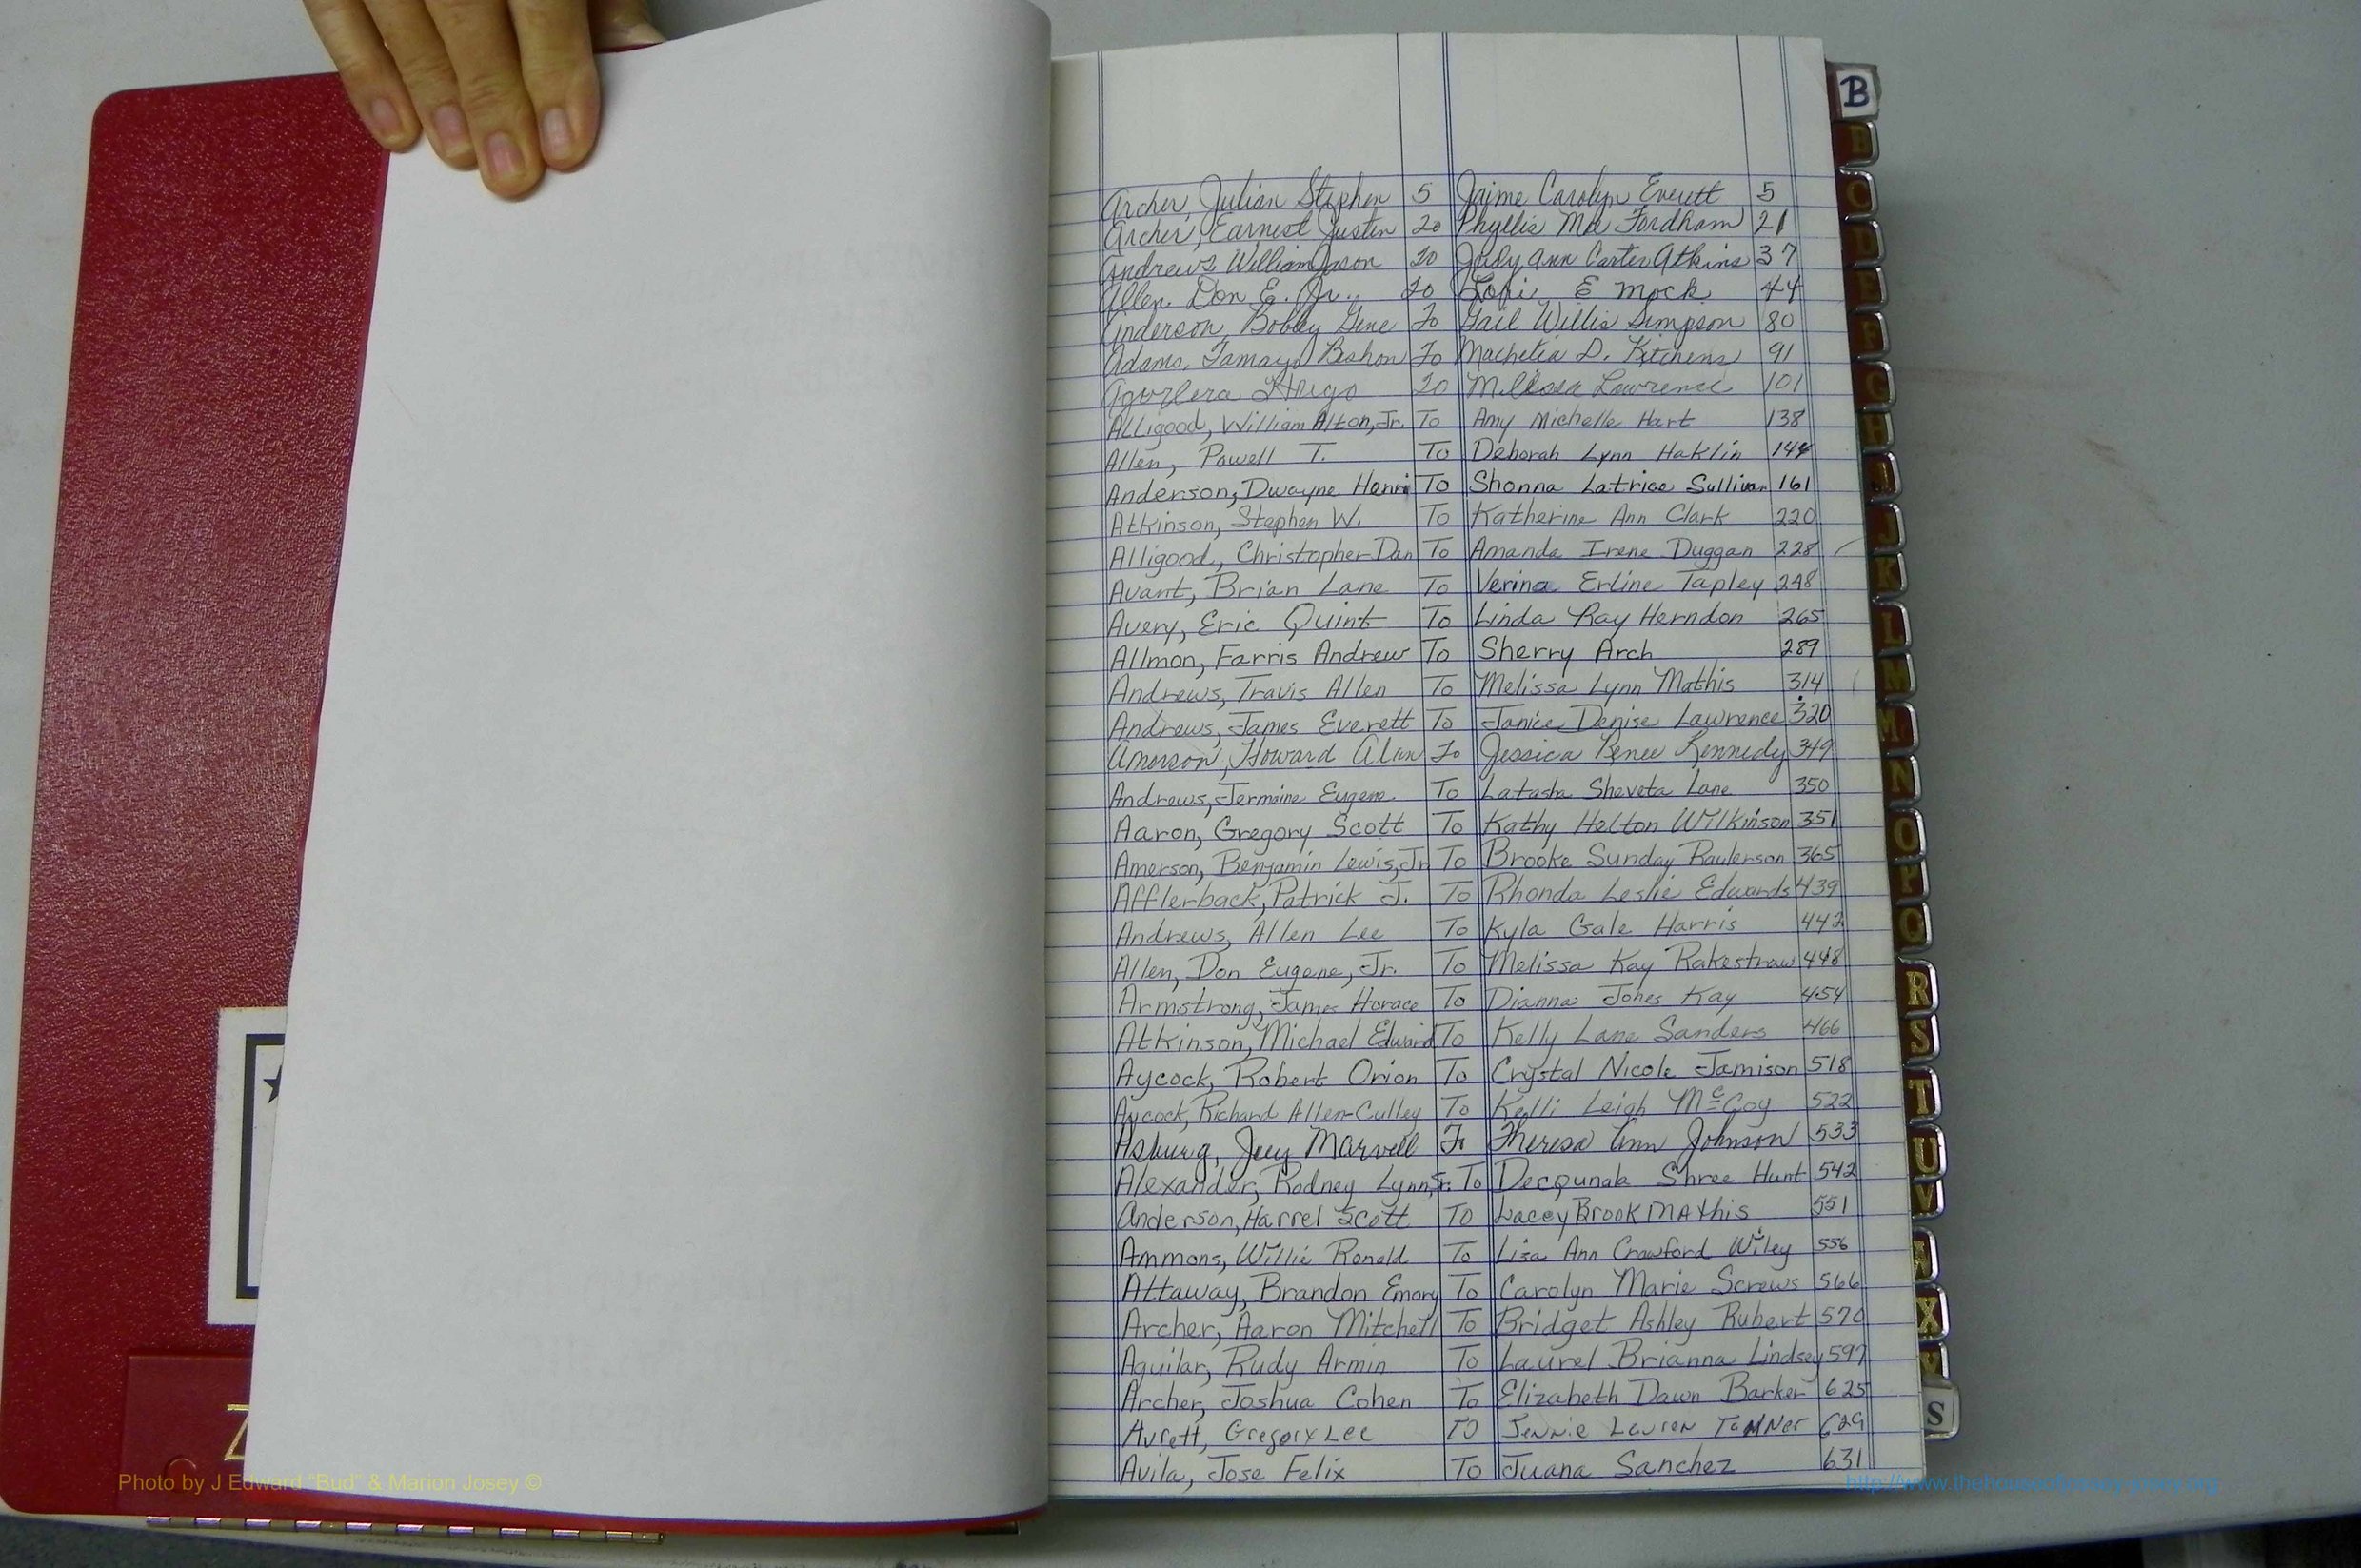 B
Archer, Julian Stephen 5 Jaime Carolyn Everett 5
Archer, Earnest Justin To Phyllis Mae Fordham 21
Andrews William Jason To Judy Ann Carter Atkins 37
Allen. Don E. Jr. To Lori E Mock 44
Anderson, Bobby Gene To Gail Willis Simpson 80
Adams, Tamayo Beshon To Machelia D. Kitchens 91
Aguilera Hugo To Melissa Lawrence 101
Alligood, William Alton, Jr. To Amy Michelle Hart 138
Allen, Powell T. To Deborah Lynn Haklin 144
Anderson, Dwayne Henri To Shonna Latrice Sullivan 161
Atkinson, Stephen W. To Katherine Ann Clark 220
Alligood, Christopher Dan To Amanda Irene Duggan 228
Avant, Brian Lane To Verina Erline Tapley 248
Avery, Eric Quint To Linda Kay Herndon 265
Allmon, Farris Andrew To Sherry Arch 289
Andrews, Travis Allen To Melissa Lynn Mathis 314
Andrews, James Everett To Janice Denise Lawrence 320
Amerson, Howard Alan To Jessica Renee Kennedy 349
Andrews, Jermaine Eugene To Latasha Sheveta Lane 350
Aaron, Gregory Scott To Kathy Helton Wilkinson 351
Amerson, Benjamin Lewis, Jr To Brooke Sunday Raulerson 365
Afflerback, Patrick J. To Rhonda Leslie Edwards 439
Andrews, Allen Lee To Kyla Gale Harris 442
Allen, Don Eugene, Jr. To Melissa Kay Rakestraw 448
Armstrong, James Horace To Dianna Jones Kay 454
Atkinson, Michael Edward To Kelly Lane Sanders 466
Aycock, Robert Orion To Crystal Nicole Jamison 518
Aycock, Richard Allen-Culley To Kelli Leigh McCoy 522
Asburg, Joey Marvell To Theresa Ann Johnson 533
Alexander, Rodney Lynn, Jr. To Decqunab Shree Hunt 542
Anderson, Harrel Scott To Lacey Brook Mathis 551
Ammons, Willie Ronald To Lisa Ann Crawford Wiley 556
Attaway, Brandon Emory To Carolyn Marie Screws 566
Archer, Aaron Mitchell To Bridget Ashley Rubert 570
Aguilar, Rudy Armin To Laurel Brianna Lindsey 597
Archer, Joshua Cohen To Elizabeth Dawn Barker 625
Avrett, Gregory Lee To Jennie Lauren Tanner 629
Avila, Jose Felix To Juana Sanchez 631
B
C
D
E
F
G
H
I
J
K
L
M
N
O
P
Q
R
S
T
U
V
W
X
Y
S
Z
Photo by J Edward "Bud" & Marion Josey ©